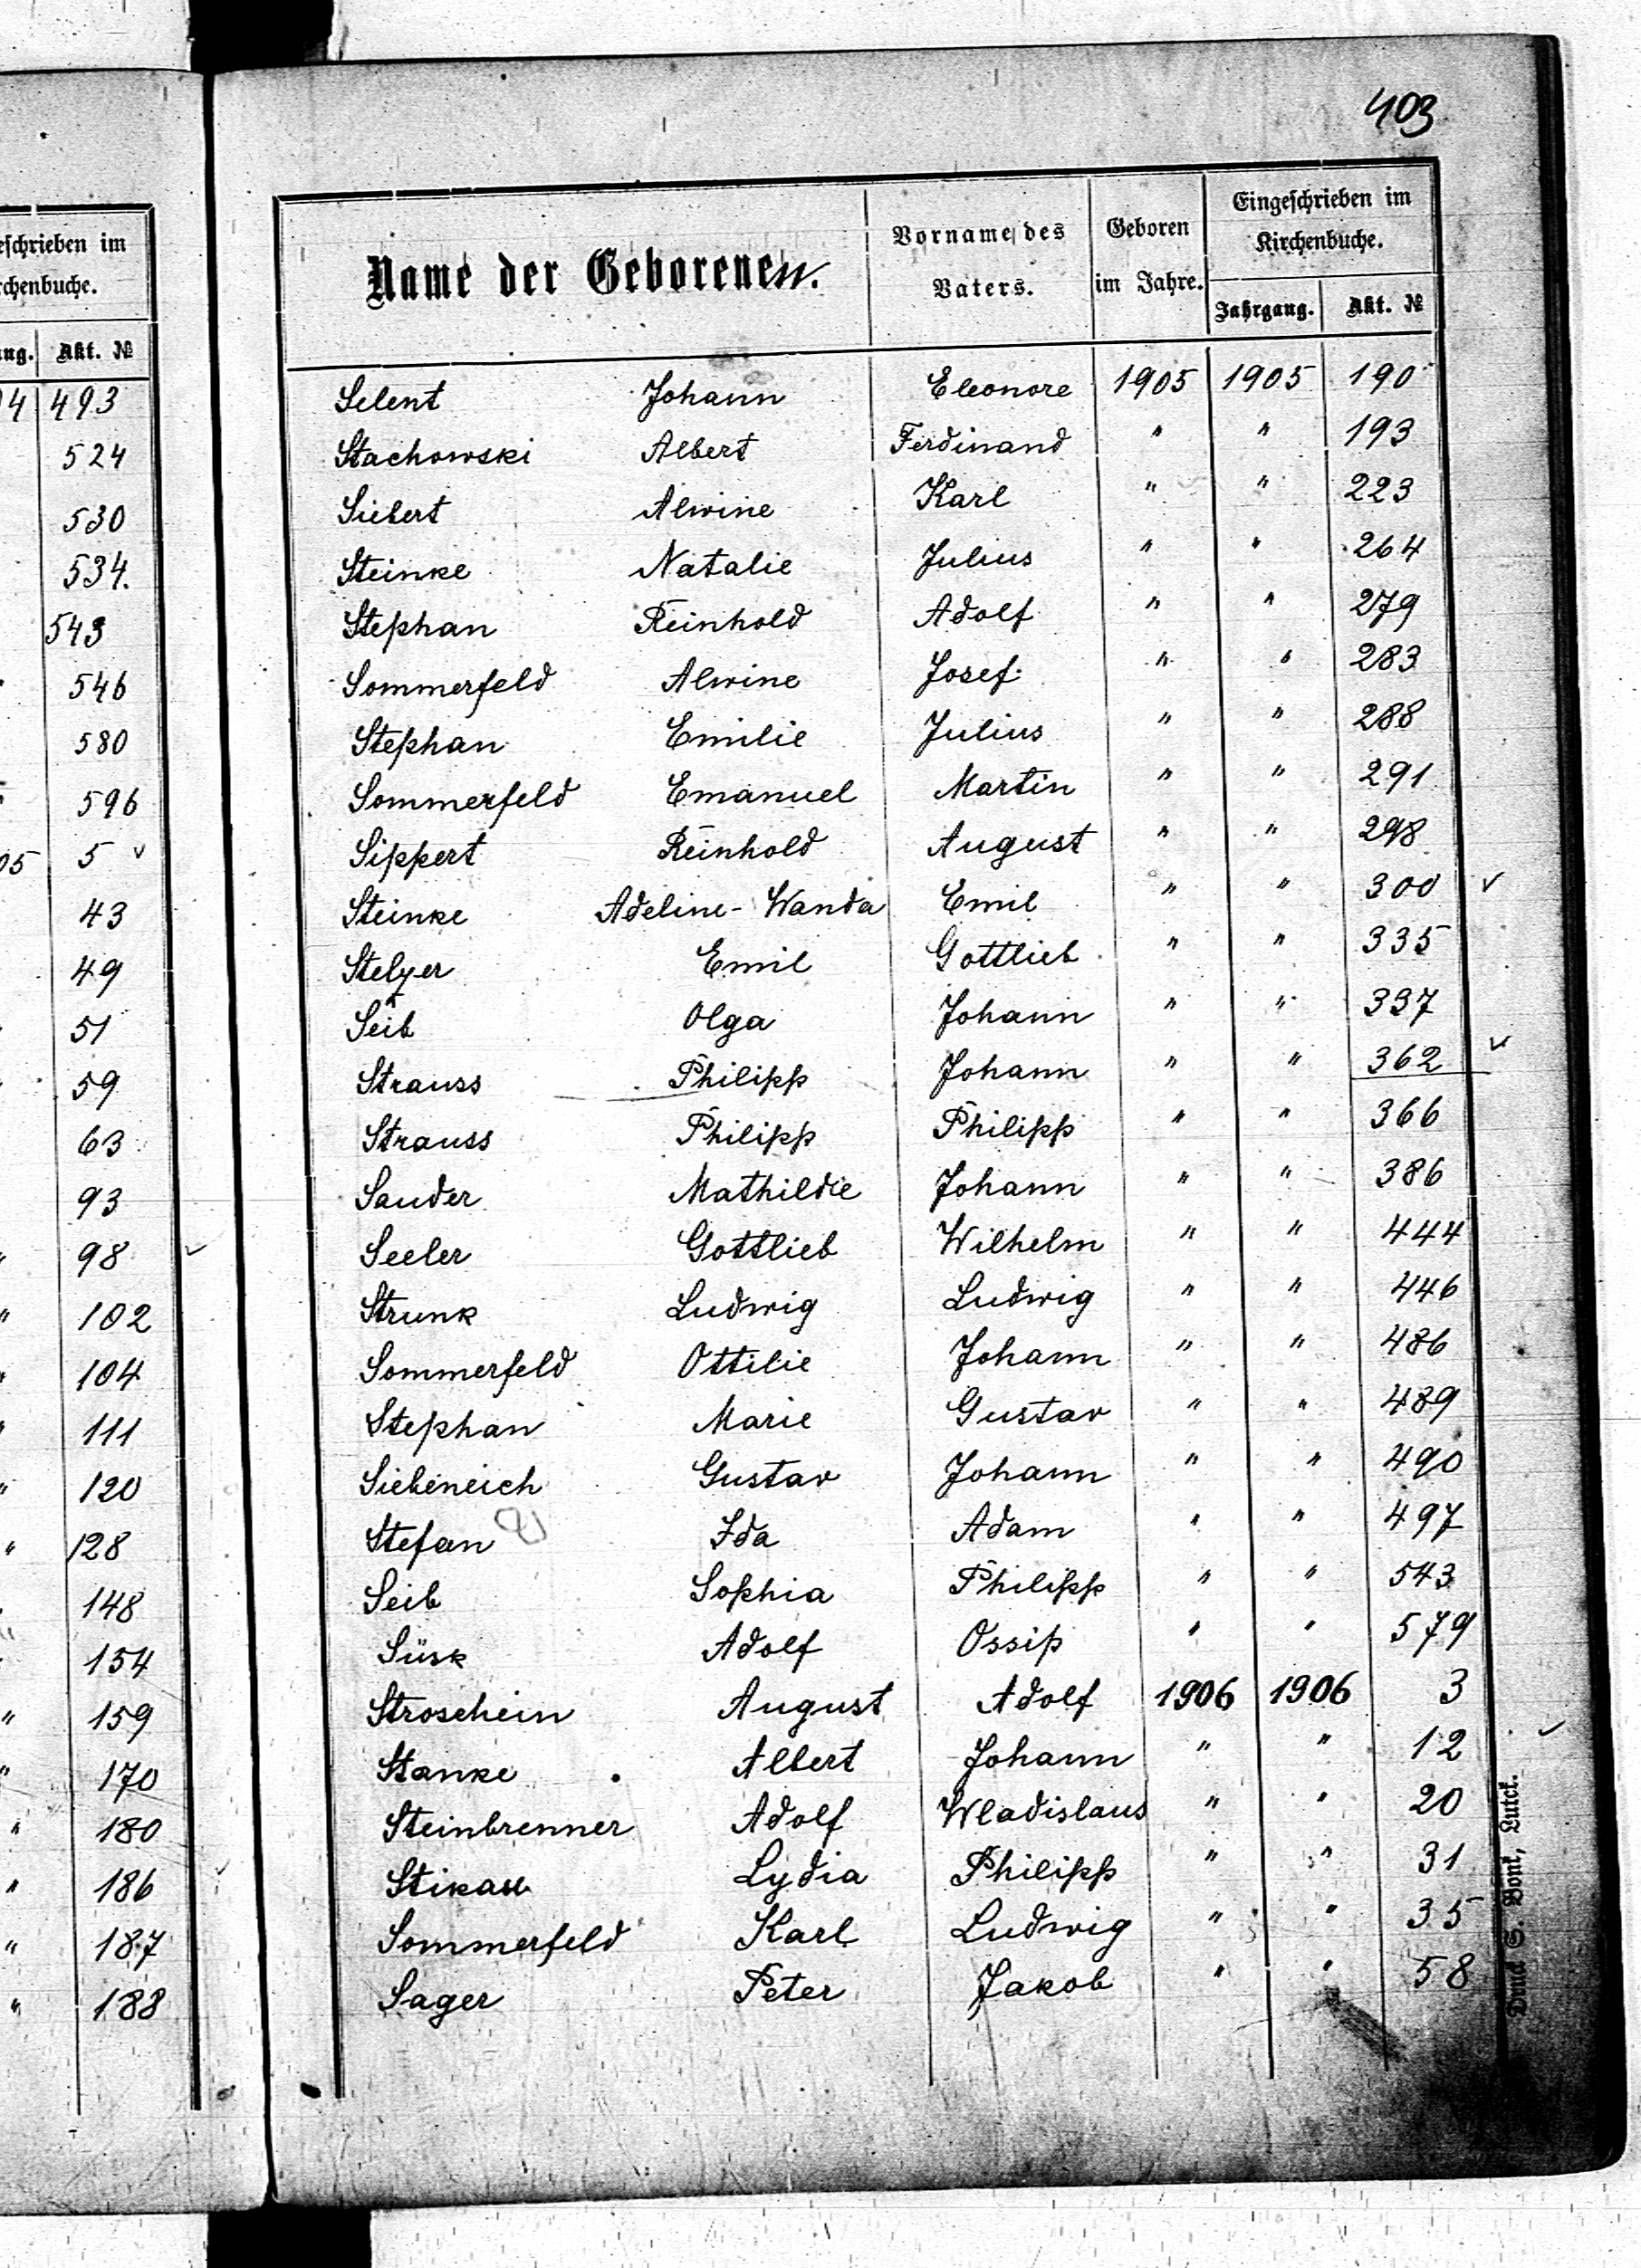 403
eschrieben im
rchenbuche.
ung. Akt. №
04 493
524
530
534.
543
546
580
596
05 5 ✓
43
49
51
59
63
93
" 98 ✓
" 102
" 104
" 111
" 120
" 128
148
154
" 159
" 170
" 180
" 186
" 187
" 188
Name der Geborenen.
Vorname des Vaters.
Geboren im Jahre.
Eingeschrieben im Kirchenbuche.
Jahrgang. Akt. №
Selent Johann Eleonore 1905 1905 190
Stachowski Albert Ferdinand " " 193
Siebert Alwine Karl " " 223
Steinke Natalie Julius " " 264
Stephan Reinhold Adolf " " 279
Sommerfeld Alwine Josef " " 283
Stephan Emilie Julius " " 288
Sommerfeld Emanuel Martin " " 291
Sippert Reinhold August " " 298
Steinke Adeline-Wanda Emil " " 300 ✓
Stelzer Emil Gottlieb " " 335
Seib Olga Johann " " 337
Strauss Philipp Johann " " 362 ✓
Strauss Philipp Philipp " " 366
Sauder Mathildie Johann " " 386
Seeler Gottlieb Wilhelm " " 444
Strunk Ludwig Ludwig " " 446
Sommerfeld Ottilie Johann " " 486
Stephan Marie Gustav " " 489
Siebeneich Gustav Johann " " 490
Stefan Ida Adam " " 497
Seib Sophia Philipp " " 543
Süsk Adolf Ossip " " 579
Stroschein August Adolf 1906 1906 3
Stanke Albert Johann " " 12 ✓
Steinbrenner Adolf Wladislaus " " 20
Stikau Lydia Philipp " " 31
Sommerfeld Karl Ludwig " " 35
Sager Peter Jakob " " 58
Druck S. Bonk, Lutck.